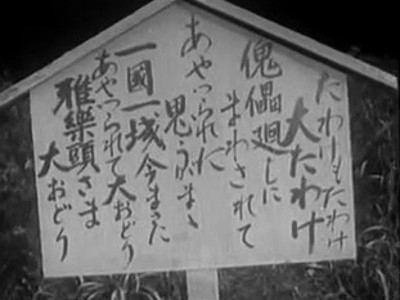 たわけもたわけ
大たわけ
傀儡廻しに
まわされて
あやつられた
思うがまゝ
一國一城今まさに
あやつられて大おどり
雅樂頭さま
大おどり